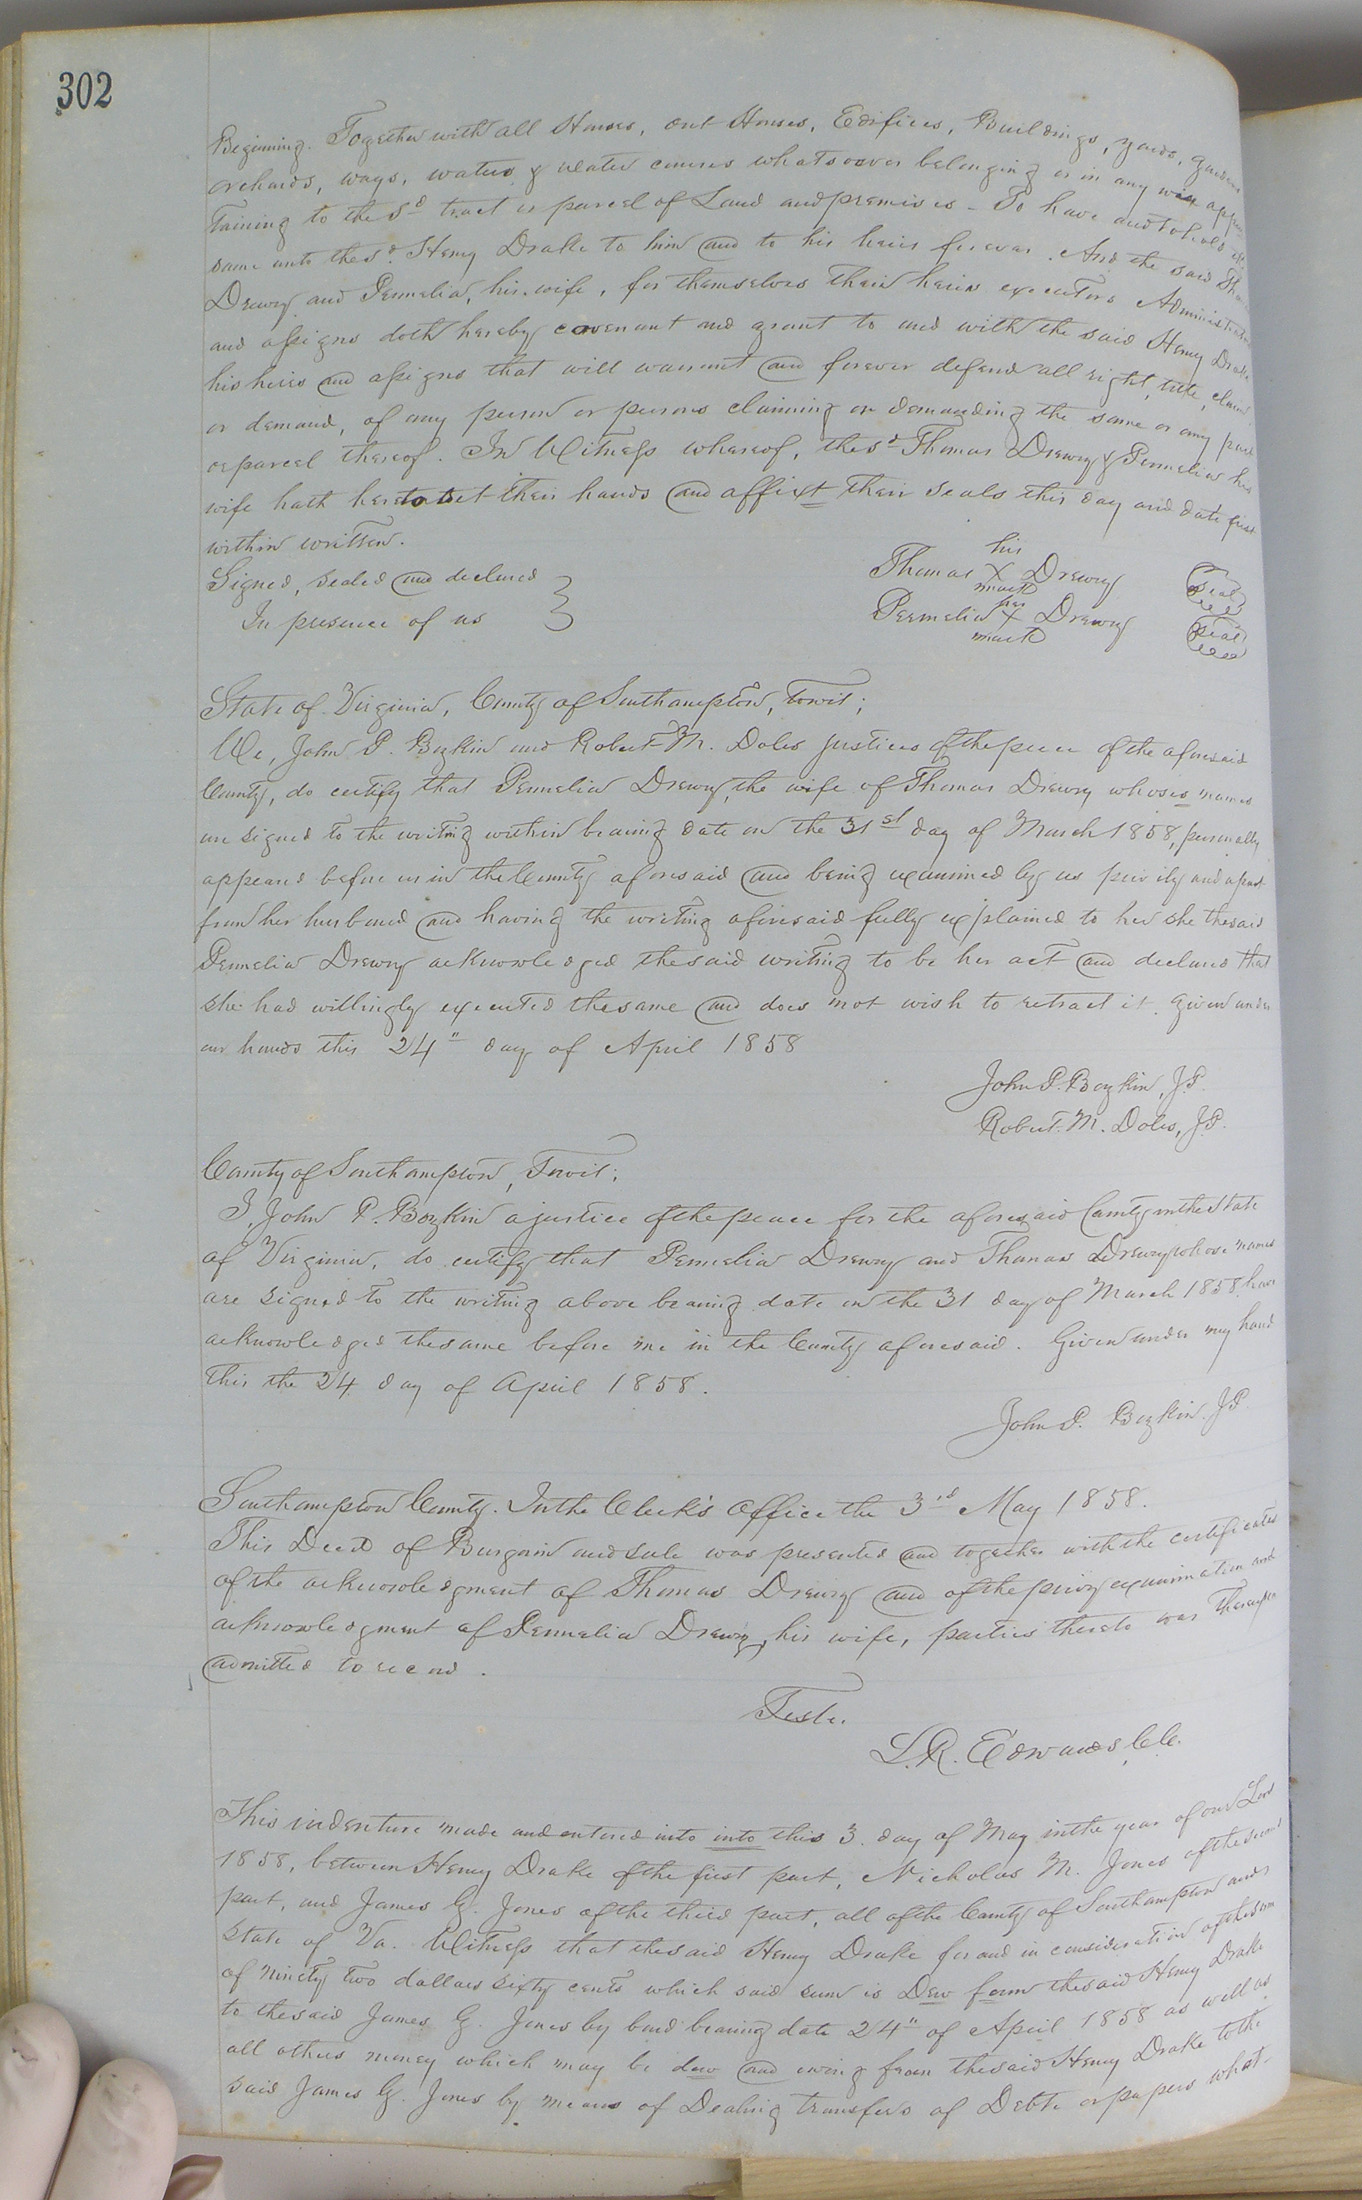 302
Beginning. Together with all Houses, out Houses, Edifices, Buildings, yards, gardens
orchards, ways, waters & water courses whatsoever belonging or in any wise apper
taining to the sd. tract or parcel of Land and premises - To have and to hold the
same unto the sd. Henry Drake to him and to his heirs forever. And the said Tho
Drewry and Permelia, his wife, for themselves their heirs executors Administrators
and assigns doth hereby covenant and grant to and with the said Henry Drake
his heirs and assigns that will warrant and forever defend all right, title, claim
or demand, of any person or persons claiming or demanding the same or any part
or parcel thereof. In Witness whereof, the sd Thomas Drewry & Permelia his
wife hath hereto set their hands and affixt their seals this day and date first
within written.
Signed, sealed and declared
In presence of us
his
Thomas X Drewry seal
mark
her
Permelia X Drewry seal
mark
State of Virginia, County of Southampton, towit;
We, John P. Bozkin and Robert M. Doles justices of the peace of the aforesaid
County, do certify that Permelia Drewry, the wife of Thomas Drewry whoses names
are signed to the writing within bearing date on the 31st day of March 1858, personally
appeared before us in the County aforesaid and being examined by us privily and apart
from her husband and having the writing aforesaid fully explained to her she the said
Permelia Drewry acknowledged the said writing to be her act and declared that
she had willingly executed the same and does not wish to retract it. Given under
our hands this 24" day of April 1858
John P. Bozkin, J.P.
Robert. M. Doles, J.P.
County of Southampton, Towit;
I, John P. Bozkin a justice of the peace for the aforesaid County in the State
of Virginia, do certify that Permelia Drewry and Thomas Drewry whose names
are signed to the writing above bearing date on the 31 day of March 1858, have
acknowledged the same before me in the County aforesaid. Given under my hand
this the 24 day of April 1858.
John P. Bozkin. J.P.
Southampton County. In the Clerk's Office the 3rd May 1858.
This Deed of Bargain and sale was presented and together with the certificates
of the acknowledgment of Thomas Drewry and of the privy examination and
acknowledgment of Permelia Drewry, his wife, parties thereto was thereupon
admitted to record.
Teste.
L.R. Edwards, C.C.
This indenture made and entered into into this 3. day of May in the year of our Lord
1858, between Henry Drake of the first part, Nicholas M. Jones of the second
part, and James G. Jones of the third part, all of the County of Southampton and
State of Va. Witness that the said Henry Drake for and in consideration of the sum
of ninety two dollars sixty cents which said sum is Dew from the said Henry Drake
to the said James G Jones by bond bearing date 24" of April 1858 as well as
all others money which may be dew and owing from the said Henry Drake to the
said James G. Jones by means of Dealing transfers of Debts or papers what-